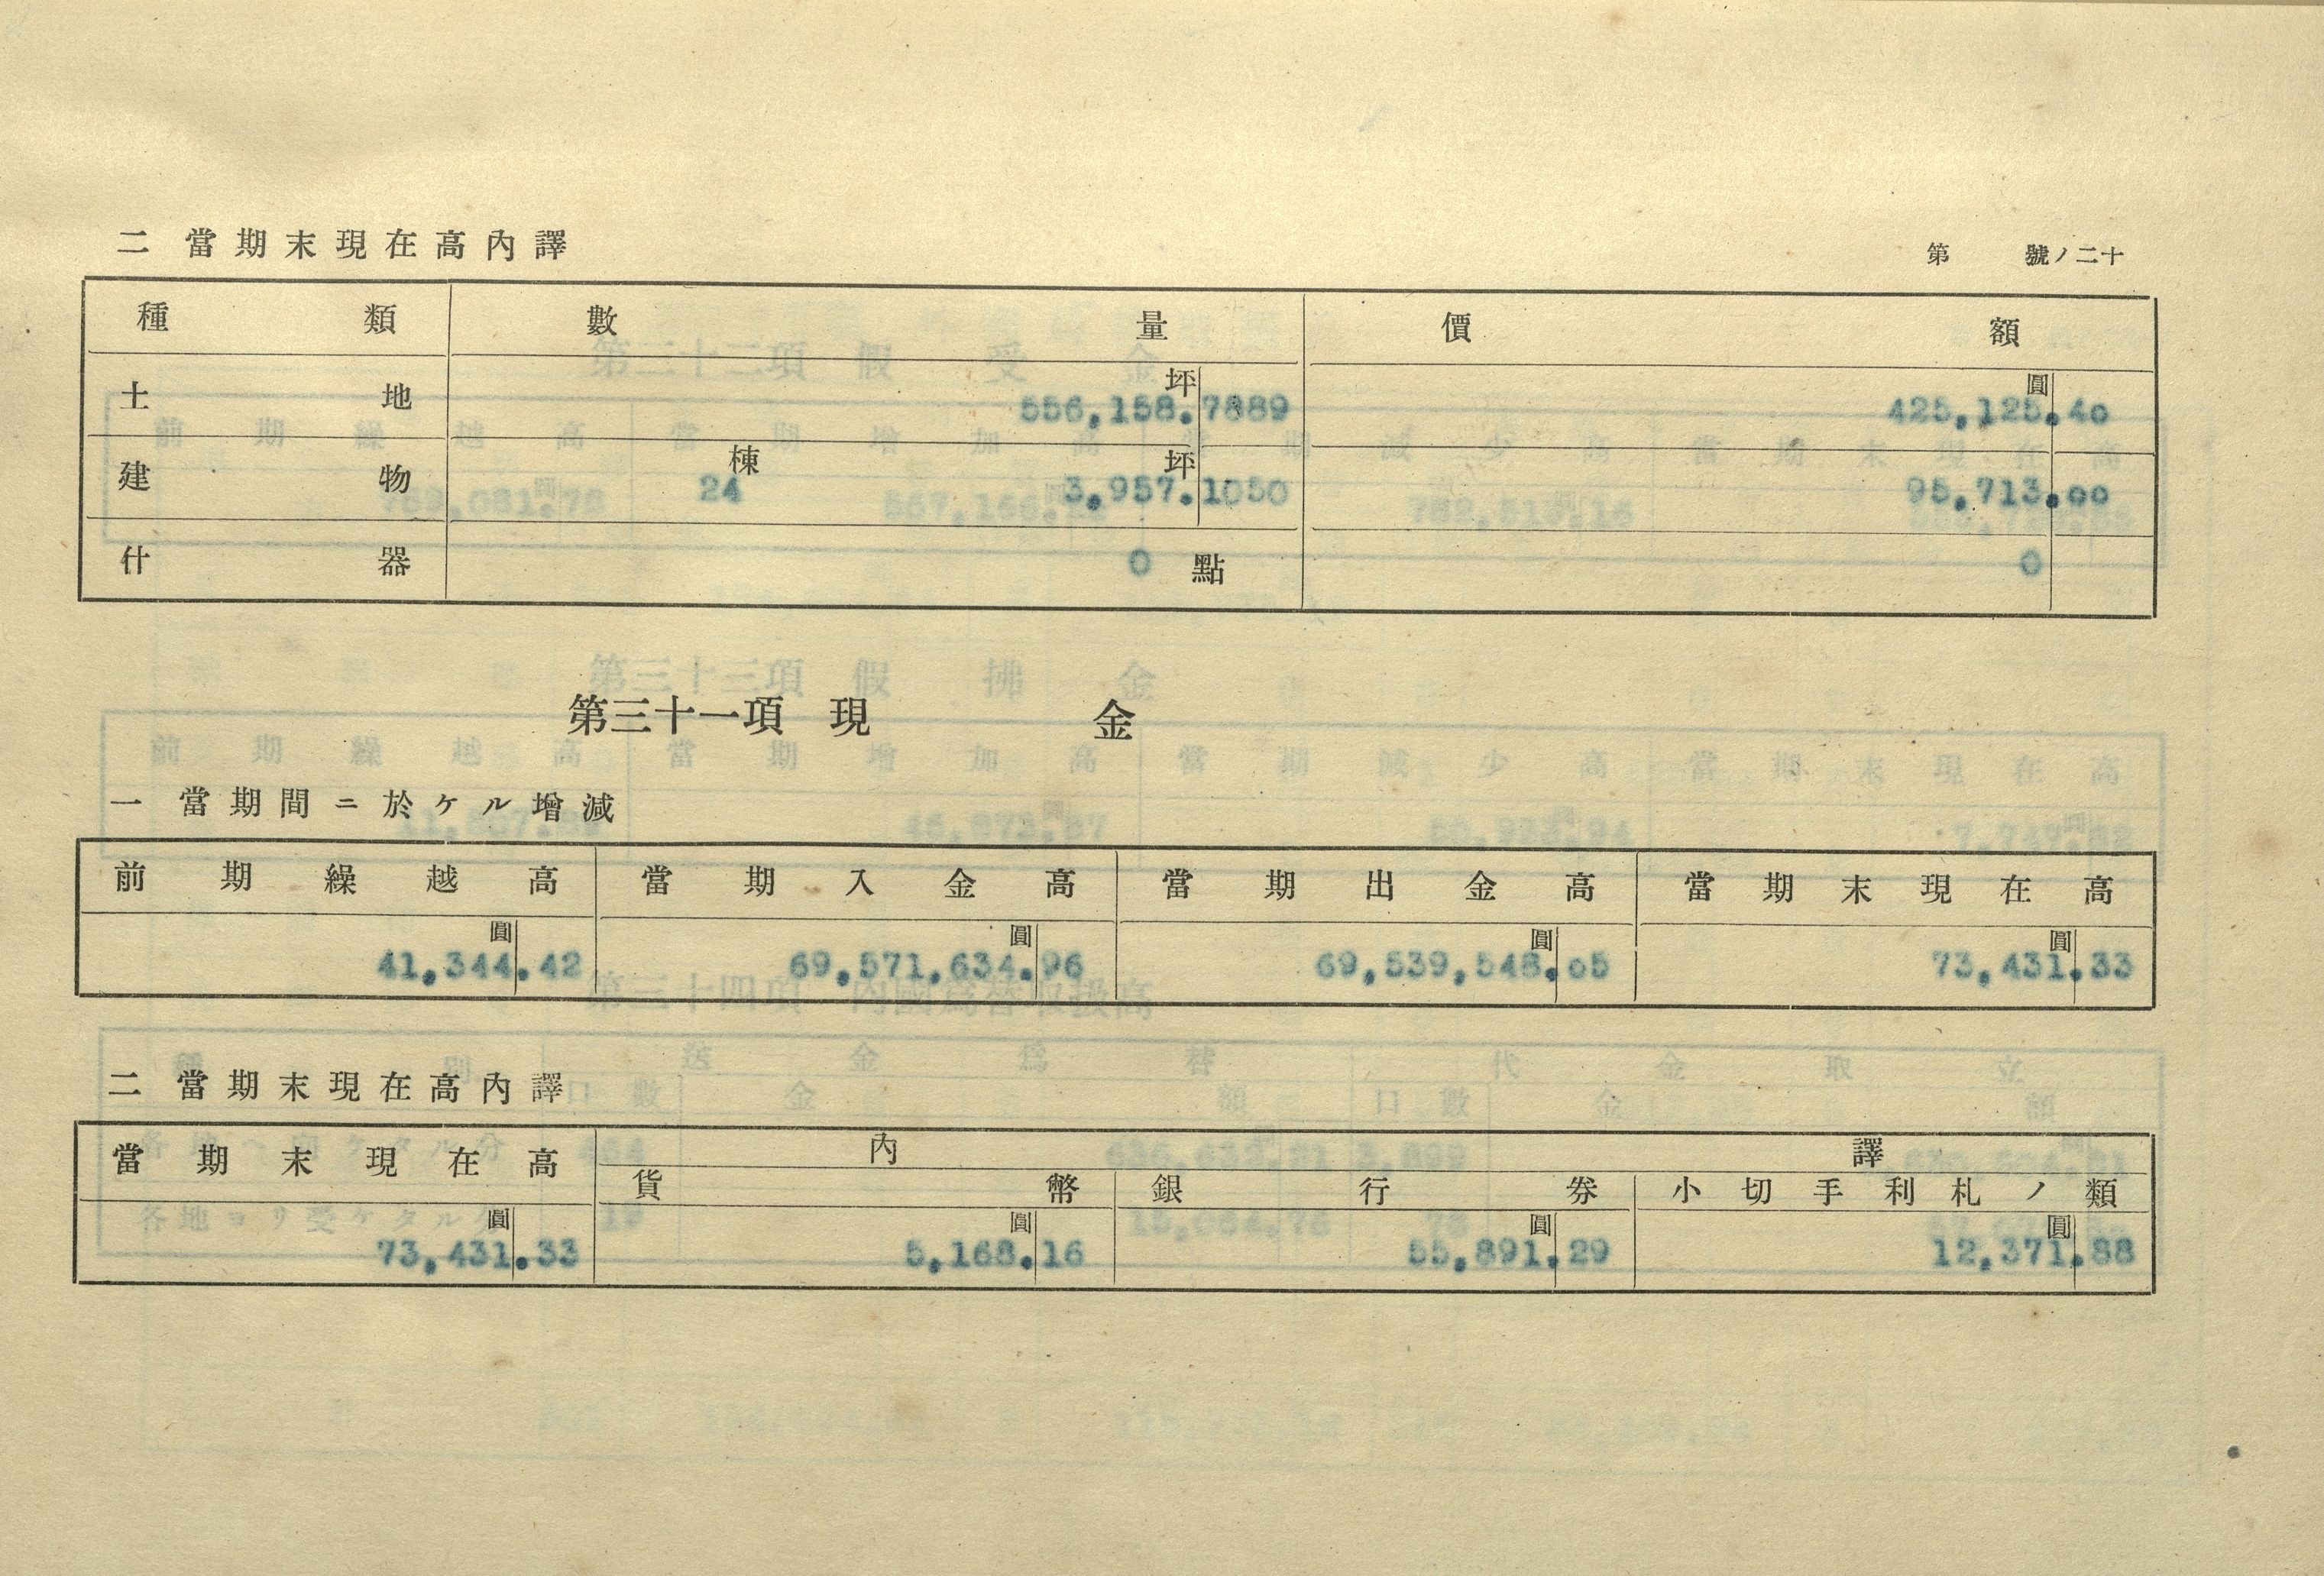 第 號ノ二十
二 當期末現在高內譯
種類 數量 價額
土地 坪 556,158.7889 圓 425,125.40
建物 棟 24 坪 3,957.1050 95,713.00
什器 0 點 0
第三十一項 現金
一 當期間ニ於ケル增減
前期繰越高 當期入金高 當期出金高 當期末現在高
圓 41,344.42 圓 69,571,634.96 圓 69,539,548.05 圓 73,431.33
二 當期末現在高內譯
當期末現在高 內譯
貨幣 銀行券 小切手利札ノ類
圓 73,431.33 圓 5,168.16 圓 55,891.29 圓 12,371.88